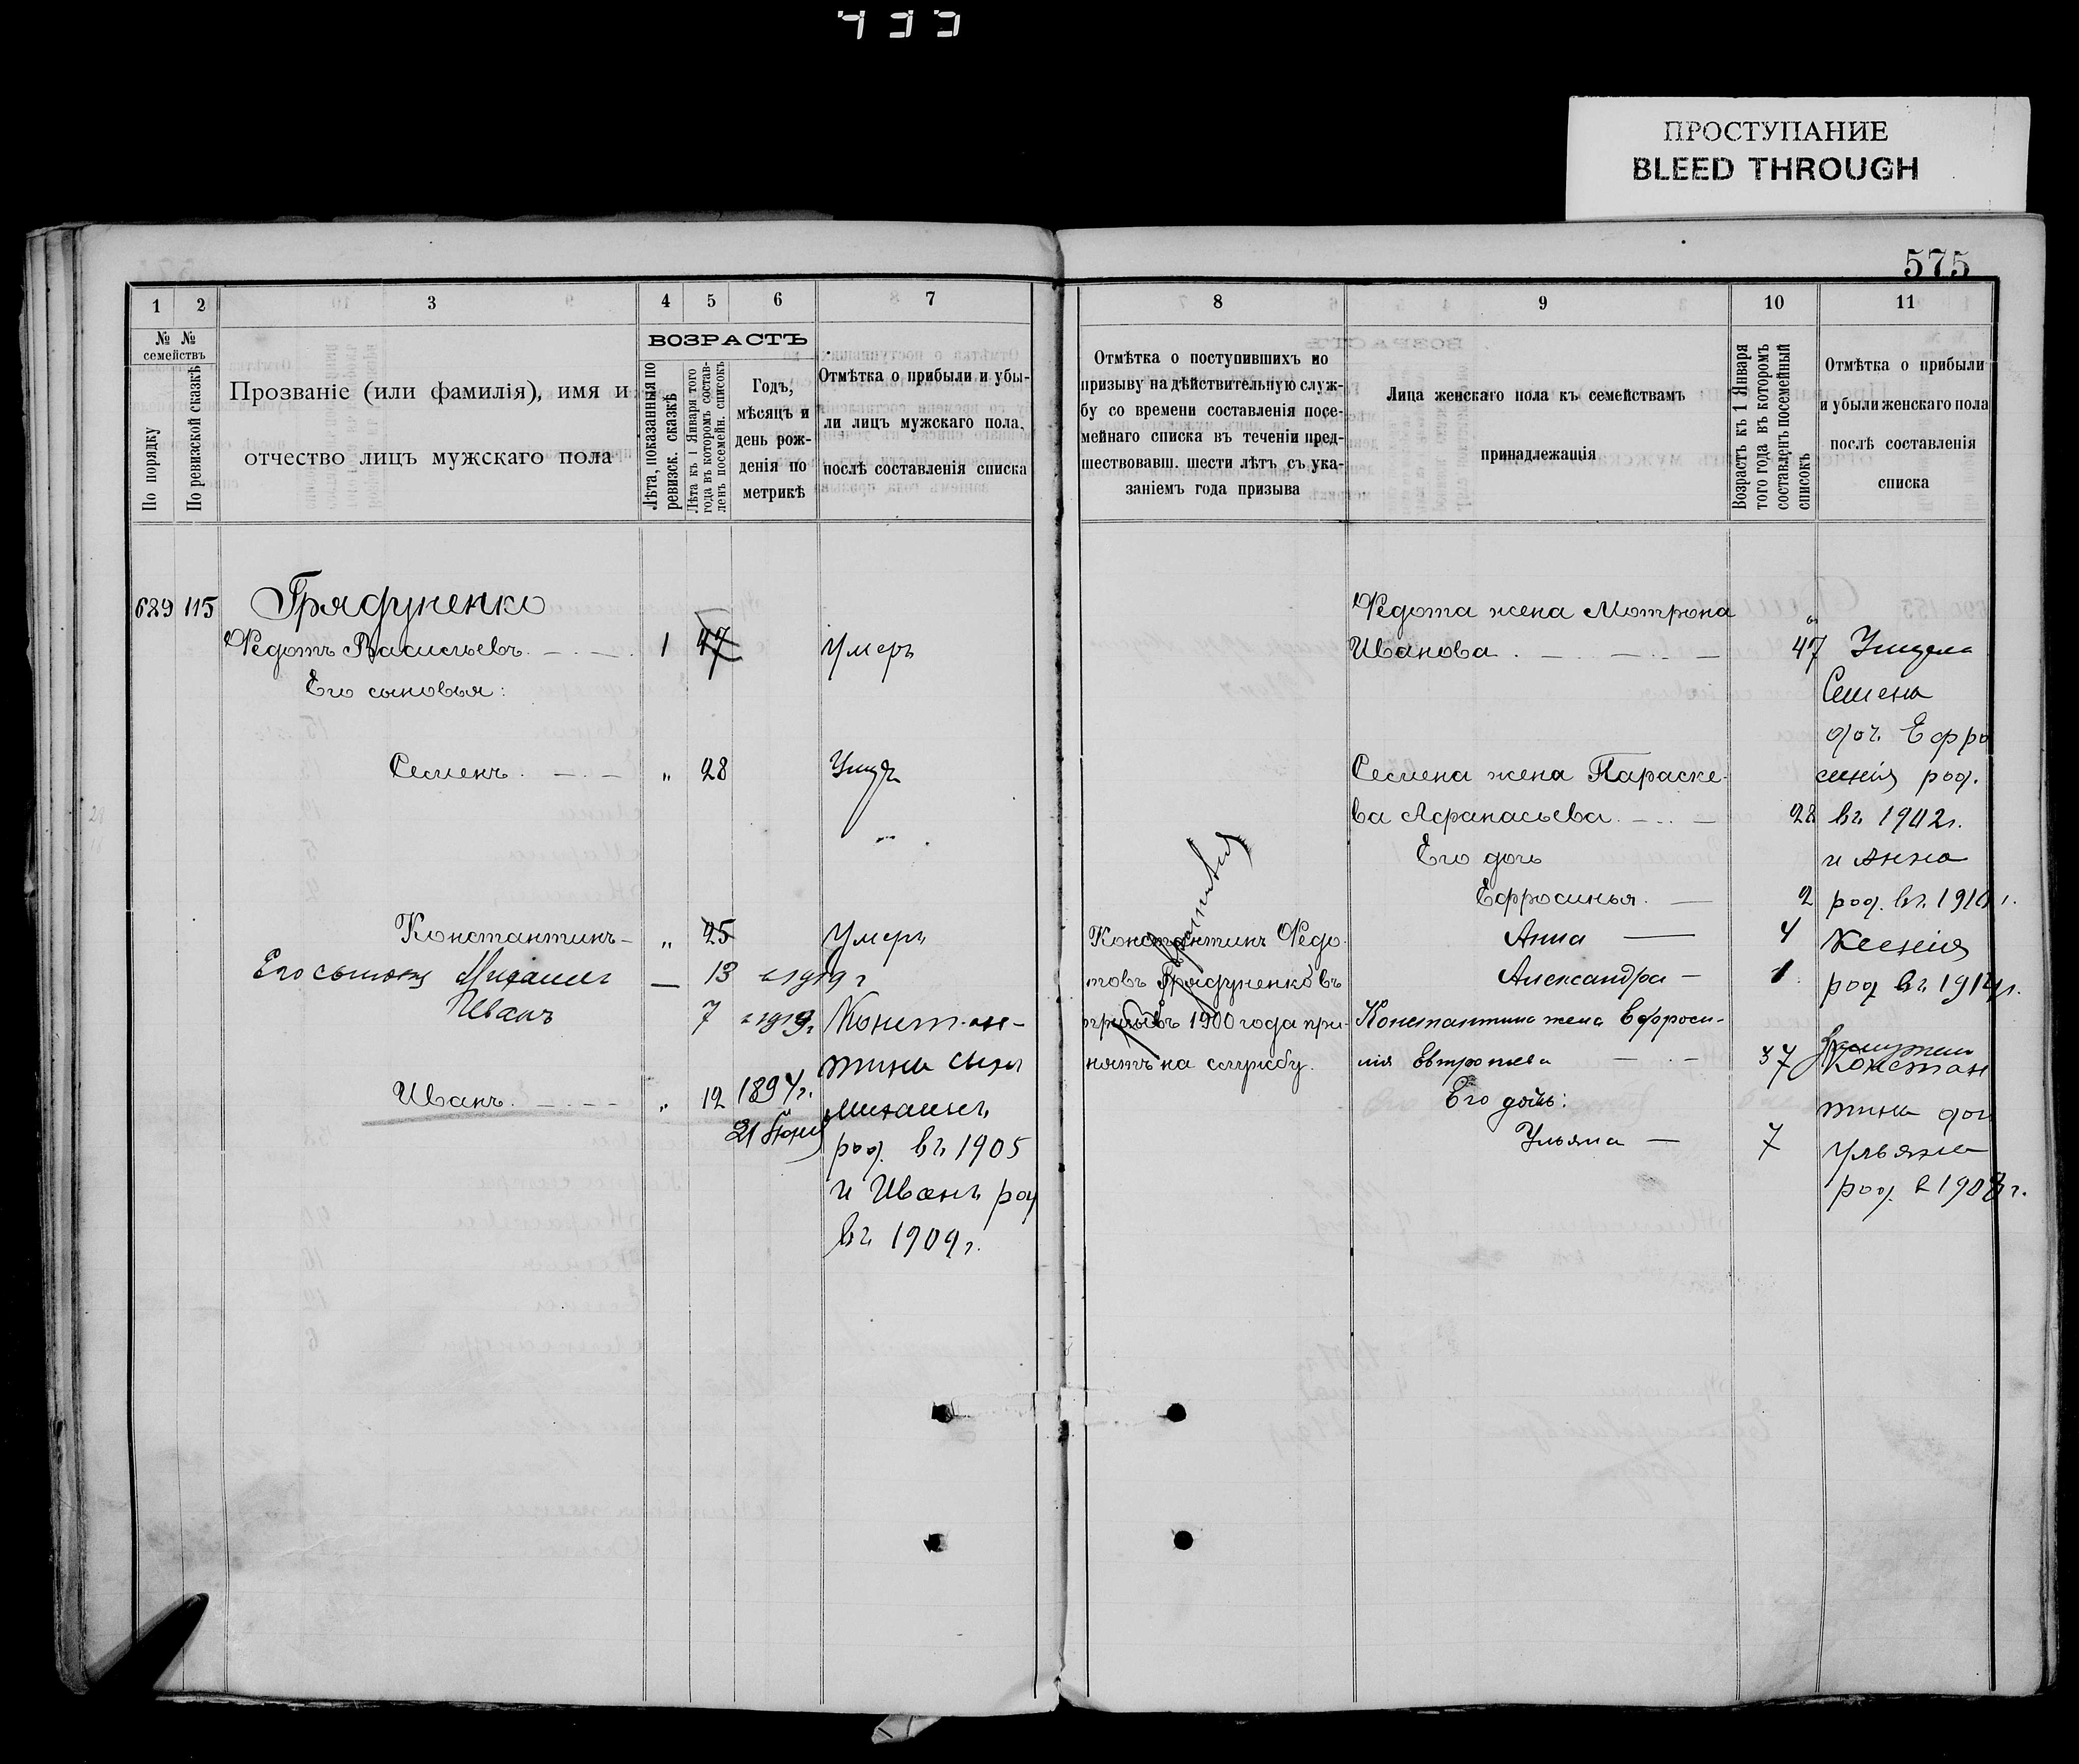 433
ПРОСТУПАНИЕ
BLEED THROUGH
575
1 2 3 4 5 6 7
№ № семействъ
По порядку
По ревизской сказкѣ
Прозваніе (или фамилія), имя и
отчество лицъ мужскаго пола
ВОЗРАСТЪ
Лѣта, показанныя по
ревизск. сказкѣ
Лѣта къ 1 Января того
года въ которомъ состав-
ленъ посемейн. списокъ
Годъ,
мѣсяцъ и
день рож-
денія по
метрикѣ
Отмѣтка о прибыли и убы-
ли лицъ мужскаго пола,
послѣ составленія списка
8 9 10 11
Отмѣтка о поступившихъ по
призыву на дѣйствительную служ-
бу со времени составленія посе-
мейнаго списка въ теченіи пред-
шествовавш. шести лѣтъ съ ука-
заніемъ года призыва
Лица женскаго пола къ семействамъ
принадлежащія
Возрастъ къ 1 Января
того года въ которомъ
составленъ посемейный
списокъ
Отмѣтка о прибыли
и убыли женскаго пола
послѣ составленія
списка
689 115 Грядуненко
Ѳедотъ Васильевъ 1 47 Умеръ
Его сыновья:
Семенъ „ 28
Константинъ „ 25 Умеръ
Его сыновья Михаилъ 13 в 1919 г
Иванъ 7 в 1919 г
Иванъ „ 12 1894 г.
21 Іюня
Констан-
тина сынъ
Михаилъ
род. въ 1905
и Иванъ род
въ 1909 г.
Константинъ Ѳедо-
товъ Грядуненко въ
призывъ 1900 года при-
нятъ на службу.
Ѳедота жена Мотрона
Иванова 47
Семена жена Параске-
ва Афанасьева 28
Его дочь
Ефросинья 2
Анна 4
Александра 1
Константина жена Ефроси-
нія 37
Его дочь:
Ульяна 7
Семена
доч. Ефро
синія род.
въ 1902 г.
и Анна
род. въ 1910 г.
Ксенія
род въ 1914 г.
Констан
тина доч
Ульяна
род. в 1908 г.